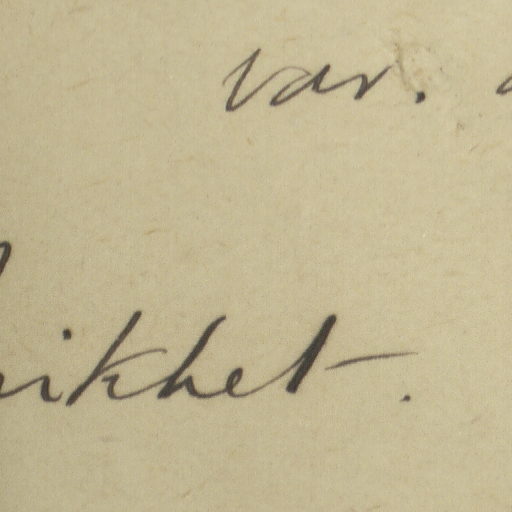 var.
ikhet.